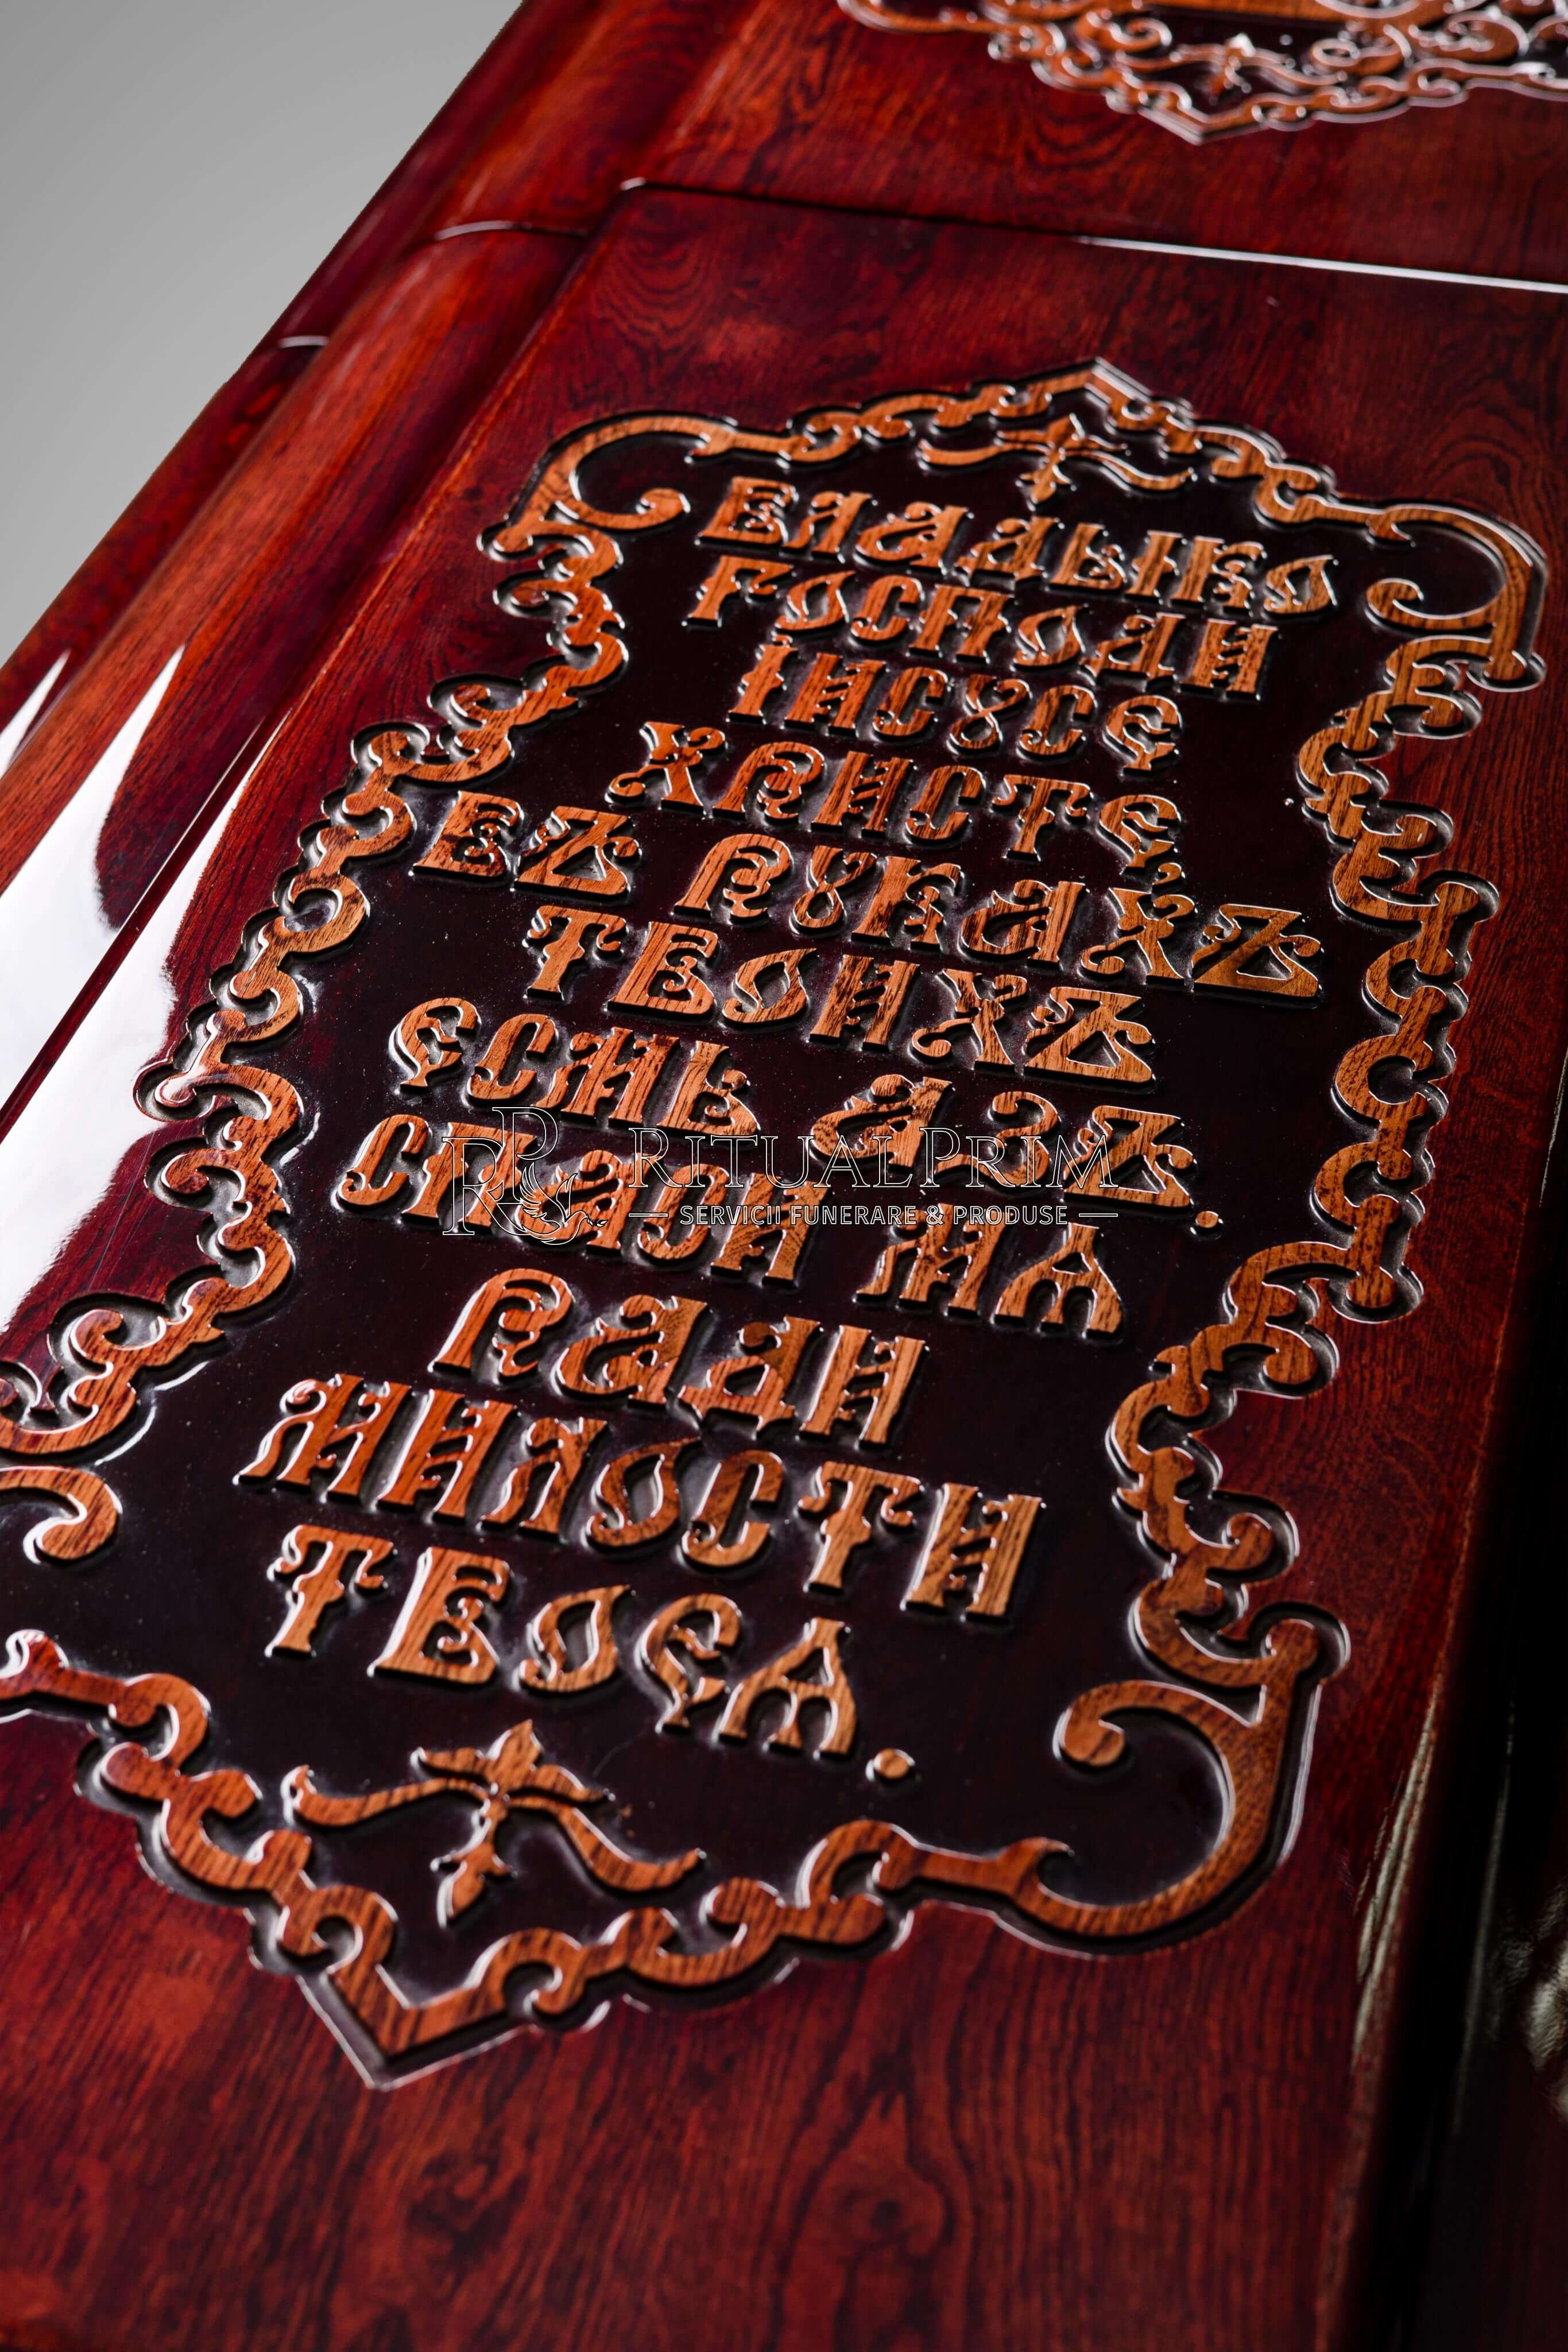 ВЛАДЫКО
ГОСПОДИ
ІИСꙊСЕ
ХРИСТЕ,
ВЪ РꙊКАХЪ
ТВОИХЪ
ЕСМЬ АЗЪ.
СПАСИ МѦ
РАДИ
МИЛОСТИ
ТВОЕѦ.
RITUALPRIM
SERVICII FUNERARE & PRODUSE